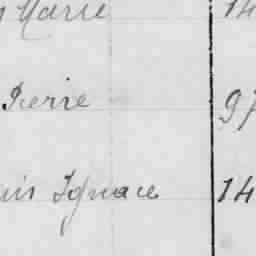 Marie 14
Pierre 97
Ignace 14